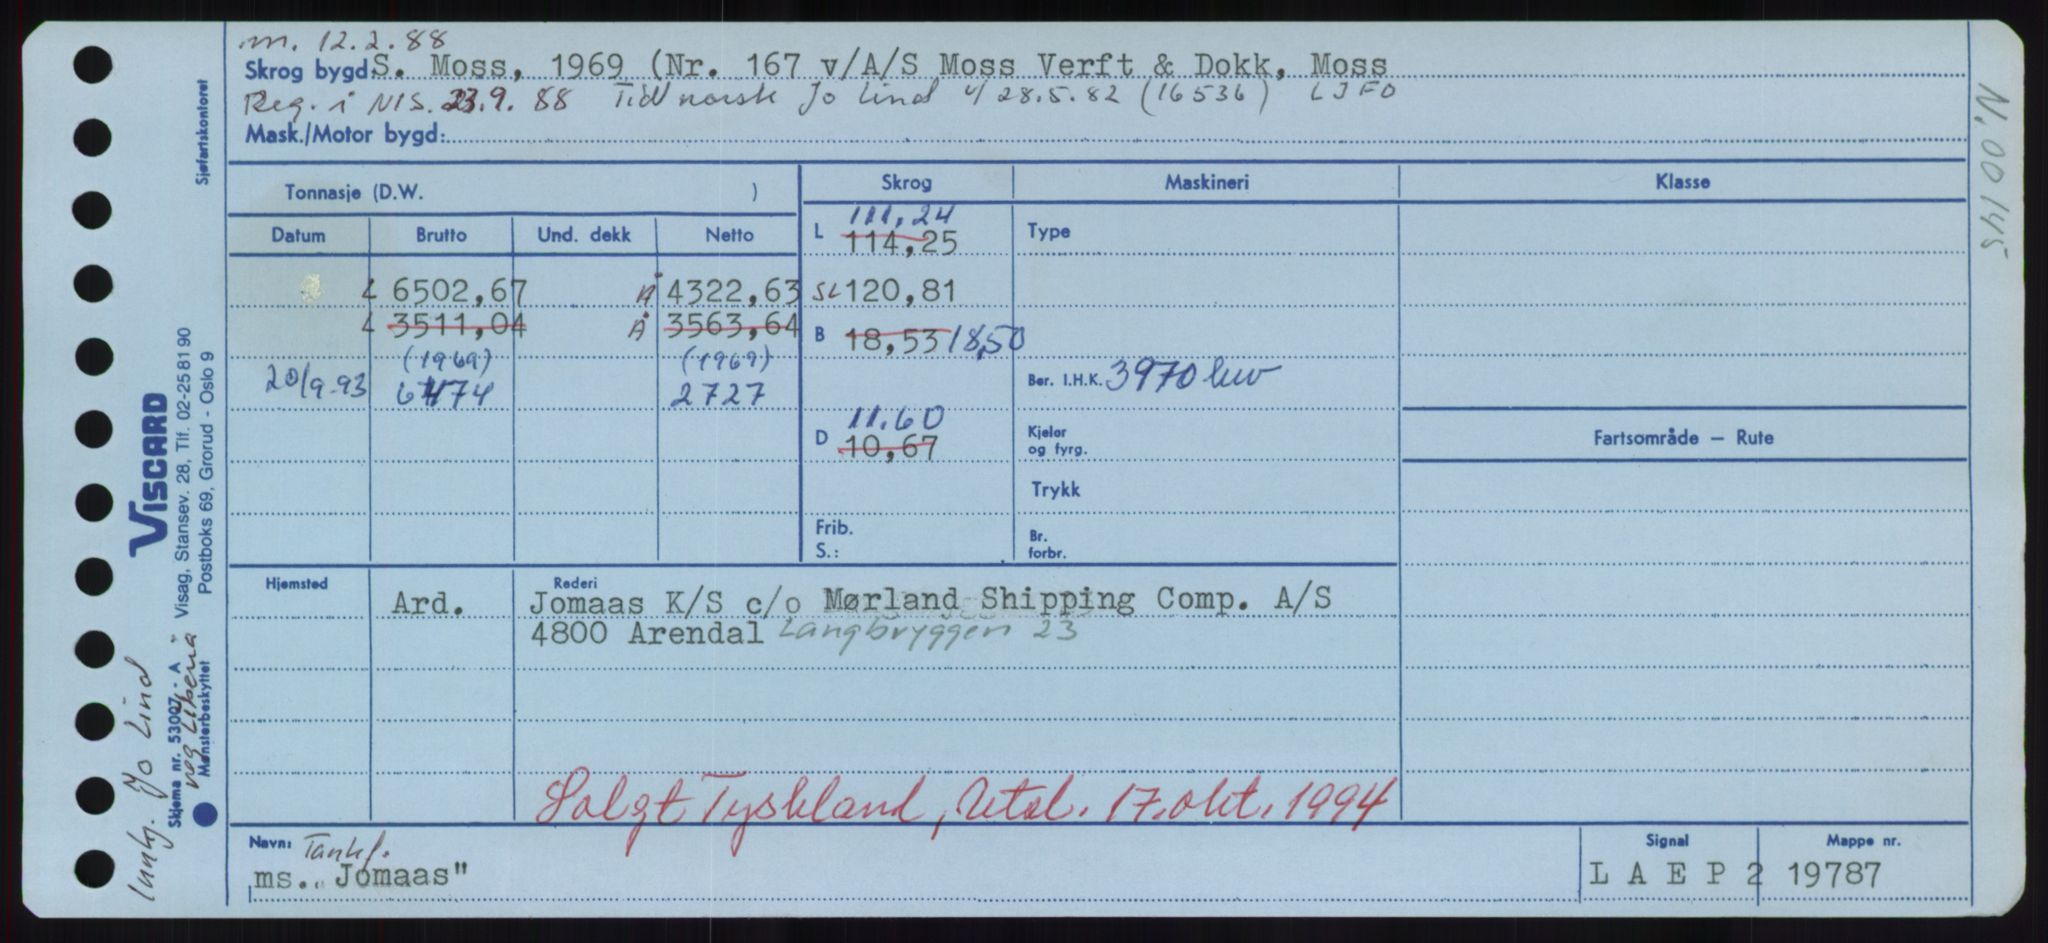 m. 12.2.88
Skrog bygd S. Moss, 1969 (Nr. 167 v/A/S Moss Verft & Dokk, Moss
Reg. i NIS. 23.9.88 Tidl norsk Jo Lind u/ 28.5.82 (16536) LJFO
Mask./Motor bygd:
Tonnasje (D.W. )
Skrog Maskineri Klasse
Datum Brutto Und. dekk Netto
L 111,24
114,25
Type
6502,67 Å 4322,63 SL 120,81
3511,04 Å 3563,64 B 18,53 18,50
(1969) (1969)
20/9-93 6474 2727
Ber. I.H.K. 3970
D 11.60
10,67
Kjeler
og fyrg.
Fartsområde — Rute
Trykk
Frib.
S.:
Br.
forbr.
Hjemsted Rederi
Ard. Jomaas K/S c/o Mørland Shipping Comp. A/S
4800 Arendal Langbryggen 23
Solgt Tyskland, Utsl. 17. okt. 1994
Navn: Tankf.
ms. "Jomaas"
Signal
L A E P 2
Mappe nr.
19787
N. 00145
Sjøfartskontoret
VISCARD
Visag, Stansev. 28, Tlf. 02-25 81 90
Postboks 69, Grorud - Oslo 9
Skjema nr. 53007 - A
Mønsterbeskyttet
Innkj. Jo Lind
reg Liberia